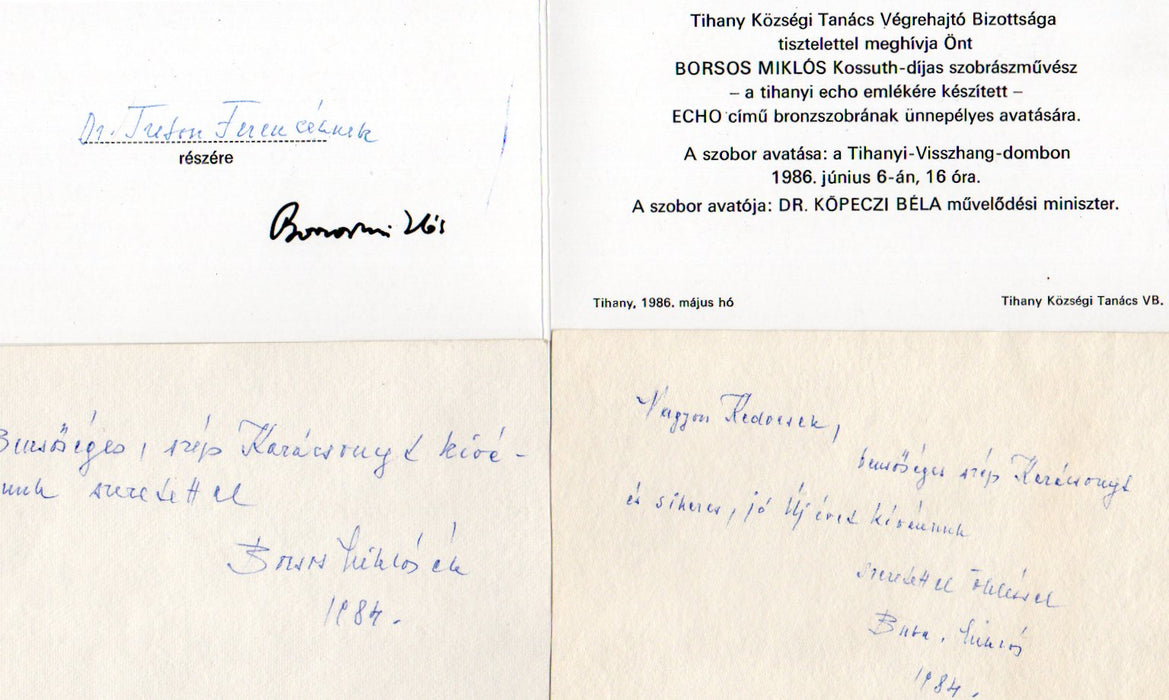 Dr. Treton Ferencéknek
részére
Tihany Községi Tanács Végrehajtó Bizottsága
tisztelettel meghívja Önt
BORSOS MIKLÓS Kossuth-díjas szobrászművész
– a tihanyi echo emlékére készített –
ECHO című bronzszobrának ünnepélyes avatására.
A szobor avatása: a Tihanyi-Visszhang-dombon
1986. június 6-án, 16 óra.
A szobor avatója: DR. KÖPECZI BÉLA művelődési miniszter.
Tihany, 1986. május hó
Tihany Községi Tanács VB.
Bensőséges, szép Karácsonyt kívá-
nunk szeretettel
Borsos Miklósék
1984.
Nagyon Kedvesek,
bensőséges szép Karácsonyt
és sikeres, jó Új évet kívánunk
szeretettel öleléssel
Buba, Miklós
1984.